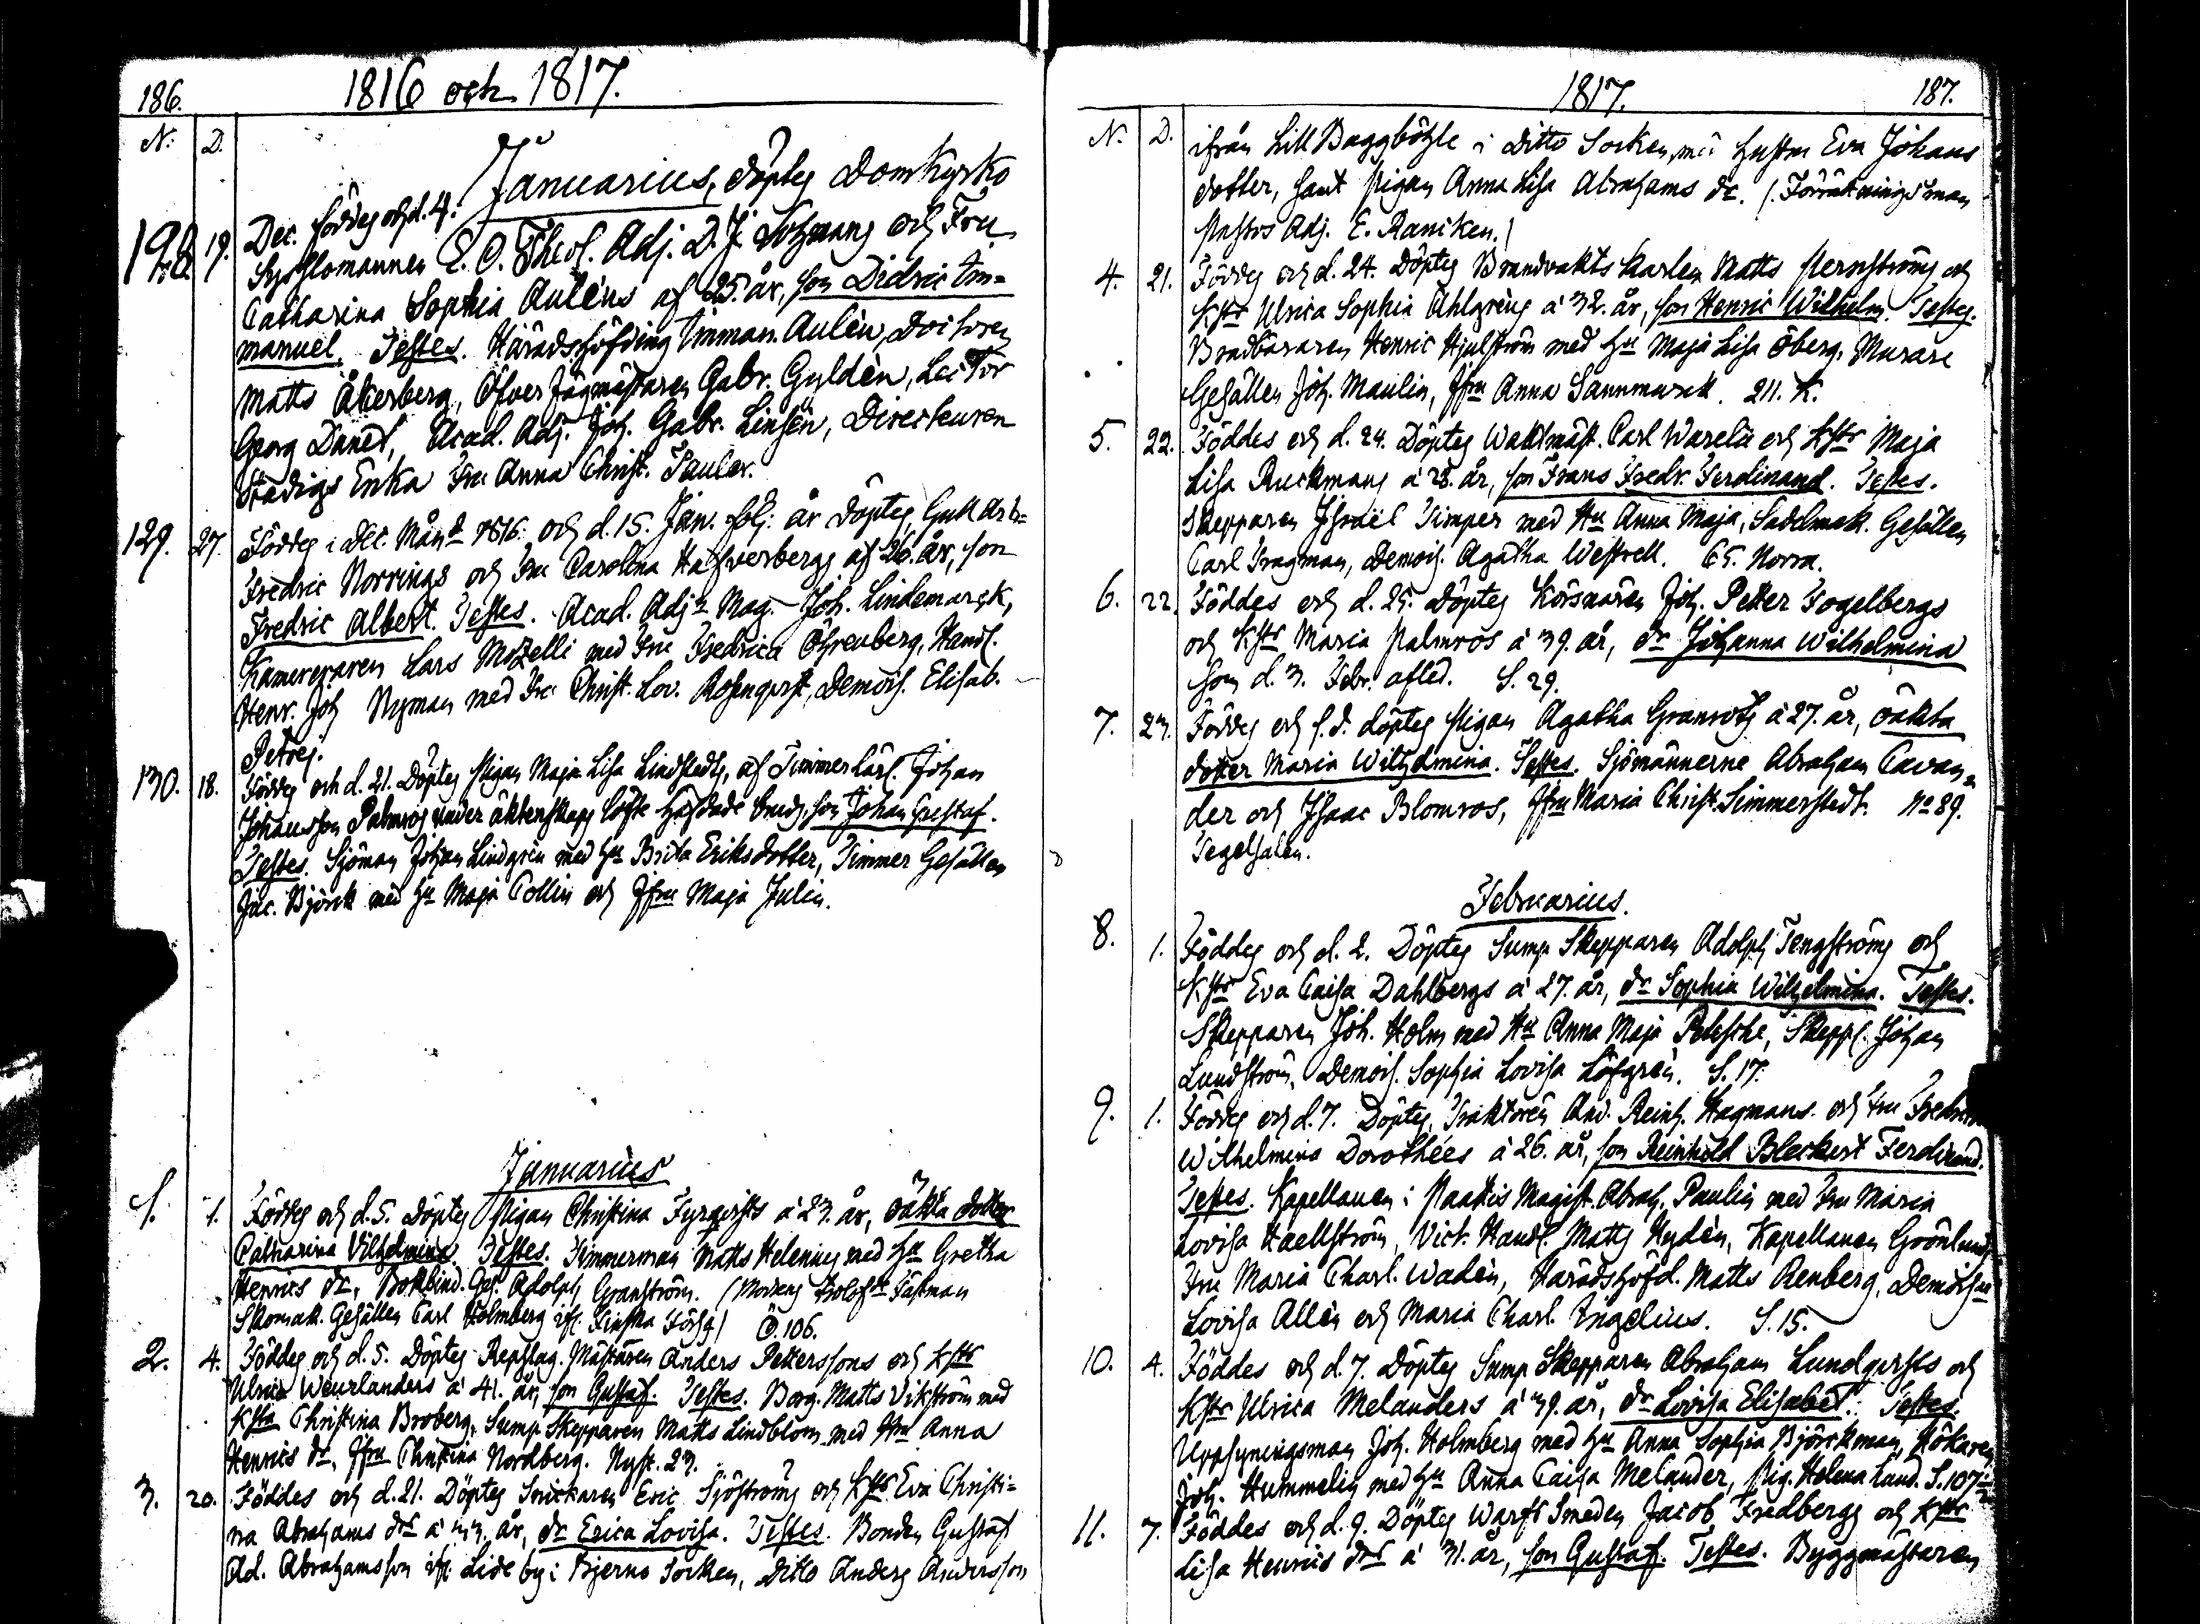 186.
1816 och 1817.
N: D.
Januarius, döptes Domkyrko
128. 19. Dec. föddes och d. 4.
Sysslomannen E. O. Theol. Adj. D. J. och Fru
Catharina Sophia Auléns af 25. år, son Didric Im=
manuel. Testes. Häradshöfding Imman. Aulén, Doctoren
Matts Åkerberg, Öfver Jägmästaren Gabr. Gyldén, Lector
Georg Danet, Acad. Adj. Joh. Gabr. Linsén, Directeuren
Stadigs Enka Fru Anna Christ. Pauler.
129. 27. Föddes i Dec. Mån. 1816. och d. 15. Jan. följ. år döptes,
Fredric Norrings och Fru Carolina Hasverbergs af 26. år, son
Fredric Albert. Testes. Acad. Adj. Mag. Joh. Lindemarck,
Kamereraren Lars Mozelli med Fru Fredrica Öhrenberg, Handl.
Henr. Joh Nyman med Fru Christ. Lov. Rosenqvist, Demois. Elisab.
Petrej.
130. 18. Föddes och d. 21. Döptes Pigan Maja Lisa Lindstedts, af Timmerkarl. Johan
Johansson Palmros under äktenskaps löfte häfdade barn, son Johan Gustaf.
Testes. Sjöman Johan Lindgrén med hu Brita Eriksdotter, Timmer Gesällen
Jac. Björck med hu Maja Collin och Jfru Maja Julin.
Januarius
1. 1. Föddes och d. 5. Döptes Pigan Christina Fyrqvists á 23. år, oäkta dotter
Catharina Vilhelmina. Testes. Timmerman Matts Helenius med hu Gretha
Henrics dr, Bokbind. Ges. Adolph Granström. (Modrens trolofde Fästman
Skomak. Gesällen Carl Holmberg Finska ) Ö. 106.
2. 4. Föddes och d. 5. Döptes Repslag. Mästaren Anders Petterssons och hstr
Ulrica Weurlanders á 41. år, son Gustaf. Testes. Borg. Matts Vikström med
hstr Christina Broberg, Sump Skepparen Matts Lindblom med Hu Anna
Henrics dr, Jfru Christina Nordberg. Nyst. 23.
3. 20. Föddes och d. 21. Döptes Snickaren Eric Sjöströms och hstr Eva Christi=
na Abrahams drs á 33. år, dr Erica Lovisa. Testes. Bonden Gustaf
Ad. Abrahamsson ifr. Lide by i Bjerno Socken, Ditto Anders Andersson
1817. 187.
N. D.
ifrån Lill Baggböhle i Ditto Socken, med hustru Eva Johans
dotter, samt Pigan Anna Lisa Abrahams dr. (Förrättningsman
Pastors Adj. E. Raniken.)
4. 21. Föddes och d. 24. Döptes Brandvakts Karlen Matts Pernströms och
hstr Ulrica Sophia Åhlgréns á 32. år, son Henric Wilhelm. Testes.
Brädbäraren Henric Hjulström med hu Maja Lisa Öberg, Murare
Gesällen Joh. Maulin, Jfru Anna Sannmarck. 211. K.
5. 22. Föddes och d. 24. Döptes Waktmäst. Carl Warelii och hstr Maja
Lisa Ruckmans á 28. år, son Frans Fredr. Ferdinand. Testes.
Skepparen Israël Timper med Hu Anna Maja, Sadelmak. Gesällen
Carl Fragman, Demois. Agatha Westrell. 65. Norra.
6. 22. Föddes och d. 25. Döptes Körsnären Joh. Petter Fogelbergs
och hstr Maria Palmros á 39. år, dr Johanna Wilhelmina
som d. 3. Febr. afled. S. 29.
7. 23. Föddes och s. d. döptes Pigan Agatha Granroths á 27. år, oäkta
dotter Maria Wilhelmina. Testes. Sjömännerne Abraham Cavan=
der och Isaac Blomros, Jfru Maria Christ. Simmerstedt. No 89.
Tegelsalen.
Februarius.
8. 1. Föddes och d. 2. Döptes Sump Skepparen Adolph Tengströms och
hstr Eva Caisa Dahlbergs á 27. år, dr Sophia Wilhelmina. Testes.
Skepparen Joh. Holm med Hu Anna Maja Petesche, Skepps. Johan
Lundström, Demois. Sophia Lovisa Löfgrén. S. 17.
9. 1. Föddes och d. 7. Döptes, Traktören And. Reinh. Hagmans och Fru
Wilhelmina Dorothées á 26. år, son Reinhold Bleckert Ferdinand.
Testes. Kapellanen i Paattis Magist. Abrah. Paulin med Fru Maria
Lovisa Haellström, Vict. Handl. Matts Hydén, Kapellanen Grönlunds
Fru Maria Charl. Wadén, Häradshöfd. Matts Renberg, Demois:ne
Lovisa Allén och Maria Charl. Ingelius. S. 15.
10. 4. Föddes och d. 7. Döptes Sump Skepparen Abraham Lundqvists och
hstr Ulrica Melanders á 39. år, dr Lovisa Elisabet. Testes.
Uppsyningsman Joh. Holmberg med hu Anna Sophia Björckman, Hökaren
Joh. Hummelin med hu Anna Caisa Melander, Pig. Helena Lund. S. 107
11. 7. Föddes och d. 9. Döptes Warfs Smeden Jacob Fredbergs och hstr
Lisa Henrics drs á 31. år, son Gustaf. Testes. Byggmästaren